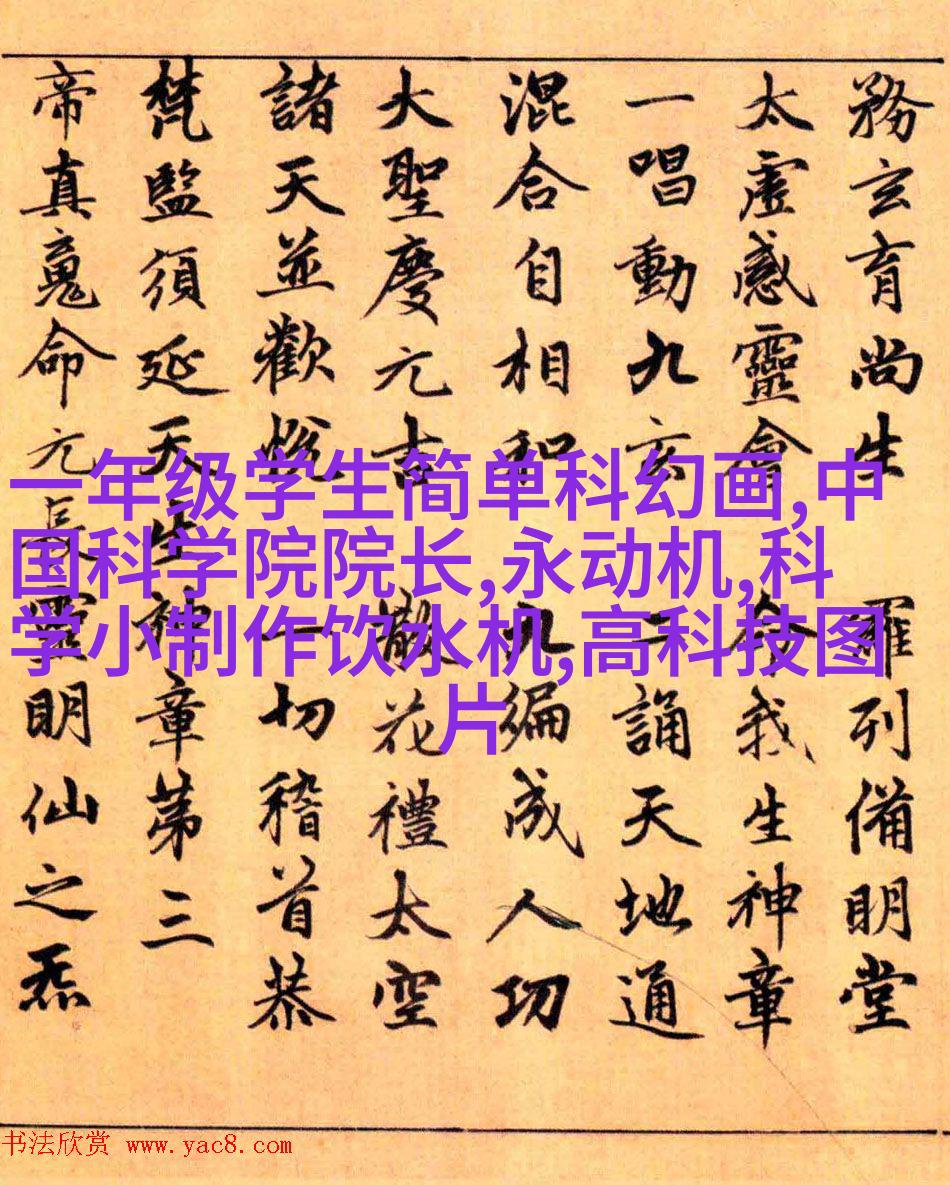 務玄育尚生 羅列備明堂
太虛感靈會 令我生神章
一唱動九玄 二誦天地通
混合自相和 九編成人功
大聖慶元吉 散花禮太空
諸天並歡悅 一切稽首恭
梵監須延天生神章第三
帝真䰟命元長靈明仙之炁
一年级学生简单科幻画,中
国科学院院长,永动机,科
学小制作饮水机,高科技图
片
书法欣赏 www.yac8.com